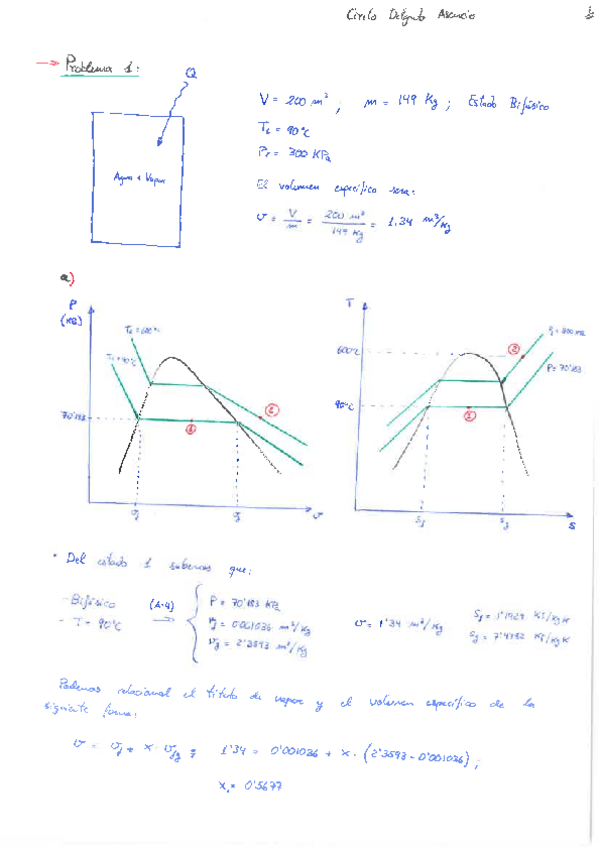 Cirilo Delgado Asencio
→ Problema 1:
Q
Agua + Vapor
V = 200 m³ ; m = 149 Kg ; Estado Bifásico
T₁ = 90°C
P_f = 300 KPa
El volumen específico será:
v = V/m = 200 m³ / 149 Kg = 1,34 m³/Kg
a)
P
T₁ = 90°C
70'183
1
2
v
T
600°C
90°C
P = 70'183
2
1
s_f
s_g
s
• Del estado 1 sabemos que:
- Bifásico
- T = 90°C
(A-4)
P = 70'183 KPa
v_f = 0'001036 m³/Kg
v_g = 2'3593 m³/Kg
v = 1'34 m³/Kg
s_f = 1'1929 KJ/KgK
Podemos relacionar el título de vapor y el volumen específico de la
siguiente forma:
v = v_f + x · v_fg ; 1'34 = 0'001036 + x · (2'3593 - 0'001036) ;
x₁ = 0'5677